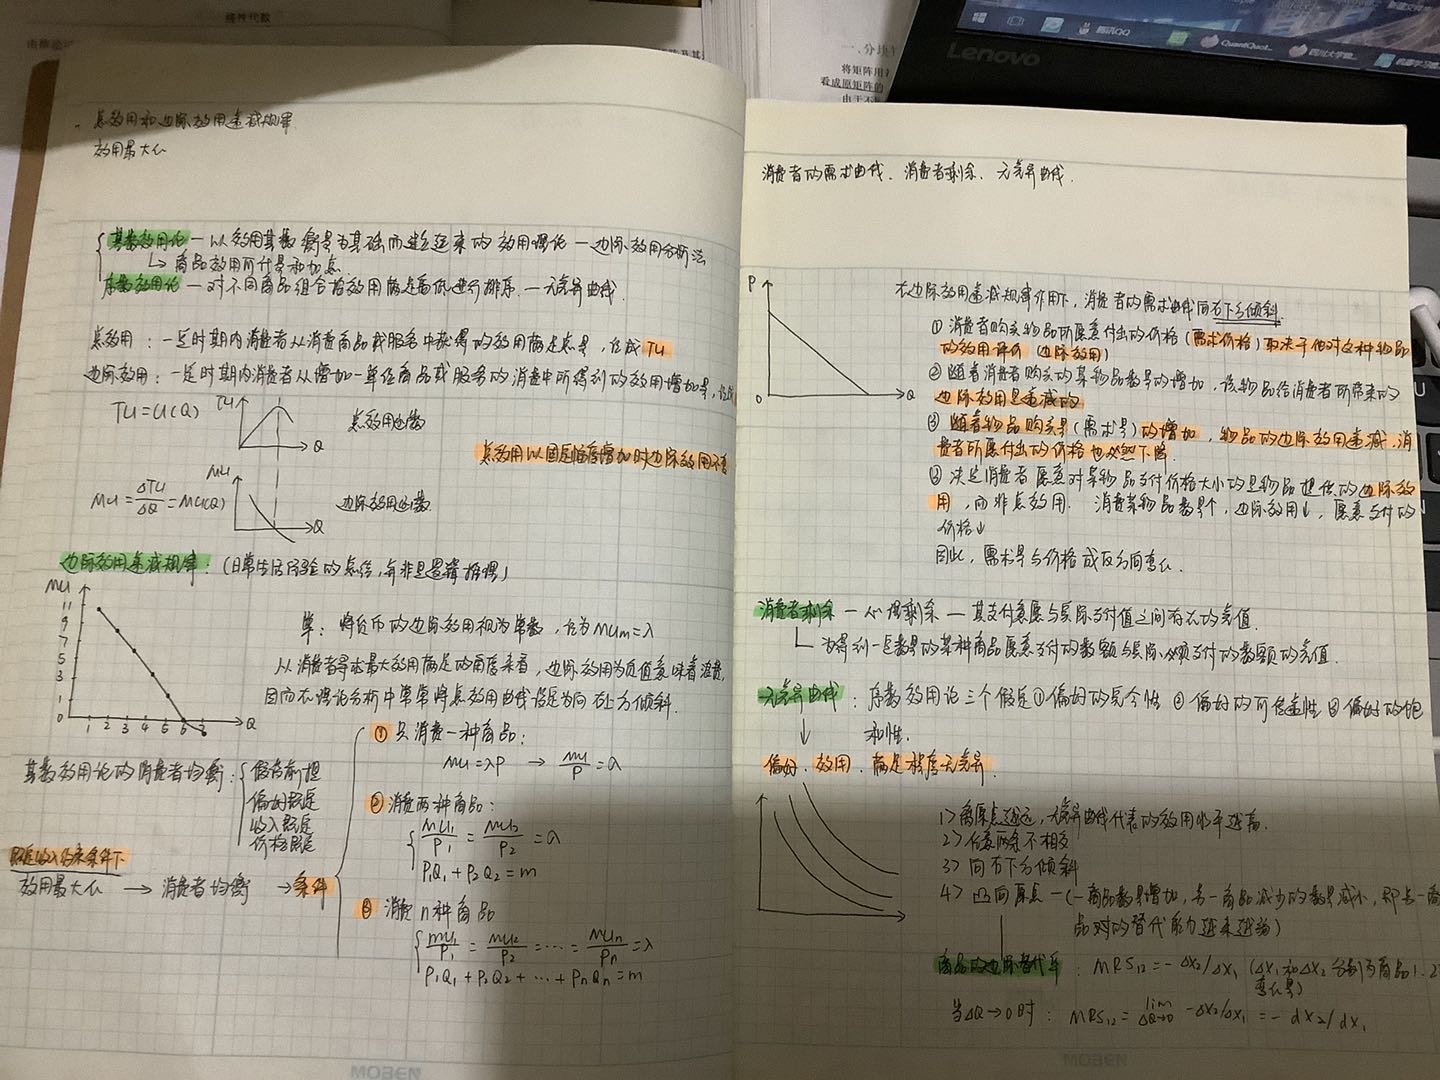 线性代数
一、分块
将矩阵用
看成原矩阵的
由于不
Lenovo
腾讯QQ
QuantQuot...
四川大学管...
机器学习概
总效用和边际效用递减规律
效用最大化
基数效用论—以效用基数衡量为基础而建立起来的效用理论—边际效用分析法
↳商品效用可计量和加总
序数效用论—对不同商品组合按效用满足高低进行排序.—无差异曲线
总效用:一定时期内消费者从消费商品或服务中获得的效用满足总量,记成TU
边际效用:一定时期内消费者从增加一单位商品或服务的消费中所得到的效用增加量,
TU=U(Q)
TU
Q
总效用函数
总效用以固定幅度增加时边际效用不变
MU=ΔTU/ΔQ=MU(Q)
MU
Q
边际效用函数
边际效用递减规律:(日常生活经验的总结,并非是逻辑推理)
MU
11
9
7
5
3
1
0
1 2 3 4 5 6 7 8 Q
单:将货币的边际效用视为常数,记为MUm=λ
从消费者寻求最大效用满足的角度来看,边际效用为负值意味着浪费,
因而在理论分析中常常将总效用曲线设定为向右上方倾斜.
基数效用论的消费者均衡:
假设前提
偏好既定
收入既定
价格既定
既定收入约束条件下
效用最大化→消费者均衡→条件
①只消费一种商品:
MU=λP → MU/P=λ
②消费两种商品:
MU1/P1=MU2/P2=λ
P1Q1+P2Q2=m
③消费n种商品
MU1/P1=MU2/P2=…=MUn/Pn=λ
P1Q1+P2Q2+…+PnQn=m
MOBEN
消费者的需求曲线、消费者剩余、无差异曲线.
P
0
Q
在边际效用递减规律作用下,消费者的需求曲线向右下方倾斜
①消费者购买物品所愿意付出的价格(需求价格)取决于他对这种物品
的效用评价(边际效用)
②随着消费者购买的某物品数量的增加,该物品给消费者所带来的
边际效用是递减的
③随着物品购买量(需求量)的增加,物品的边际效用递减,消
费者所愿付出的价格也必然下降.
④决定消费者愿意对某物品支付价格大小的是物品提供的边际效
用,而非总效用.消费某物品数量↑,边际效用↓,愿意支付的
价格↓
因此,需求量与价格成反方向变化.
消费者剩余—心理剩余—其支付意愿与实际支付值之间存在的差值.
为得到一定数量的某种商品愿意支付的数额与实际必须支付的数额的差值.
无差异曲线:序数效用论三个假定①偏好的完全性 ②偏好的可传递性 ③偏好的饱
和性.
偏好、效用、满足程度无差异.
1>离原点越远,无差异曲线代表的效用水平越高.
2>任意两条不相交
3>向右下方倾斜
4>凸向原点—(一商品数量增加,另一商品减少的数量减小,即另一商
品对的替代能力越来越弱)
商品的边际替代率:MRS12=-ΔX2/ΔX1 (ΔX1和ΔX2分别为商品1.2
变化量)
当ΔQ→0时:MRS12=lim ΔQ→0 -ΔX2/ΔX1=-dX2/dX1
MOBEN